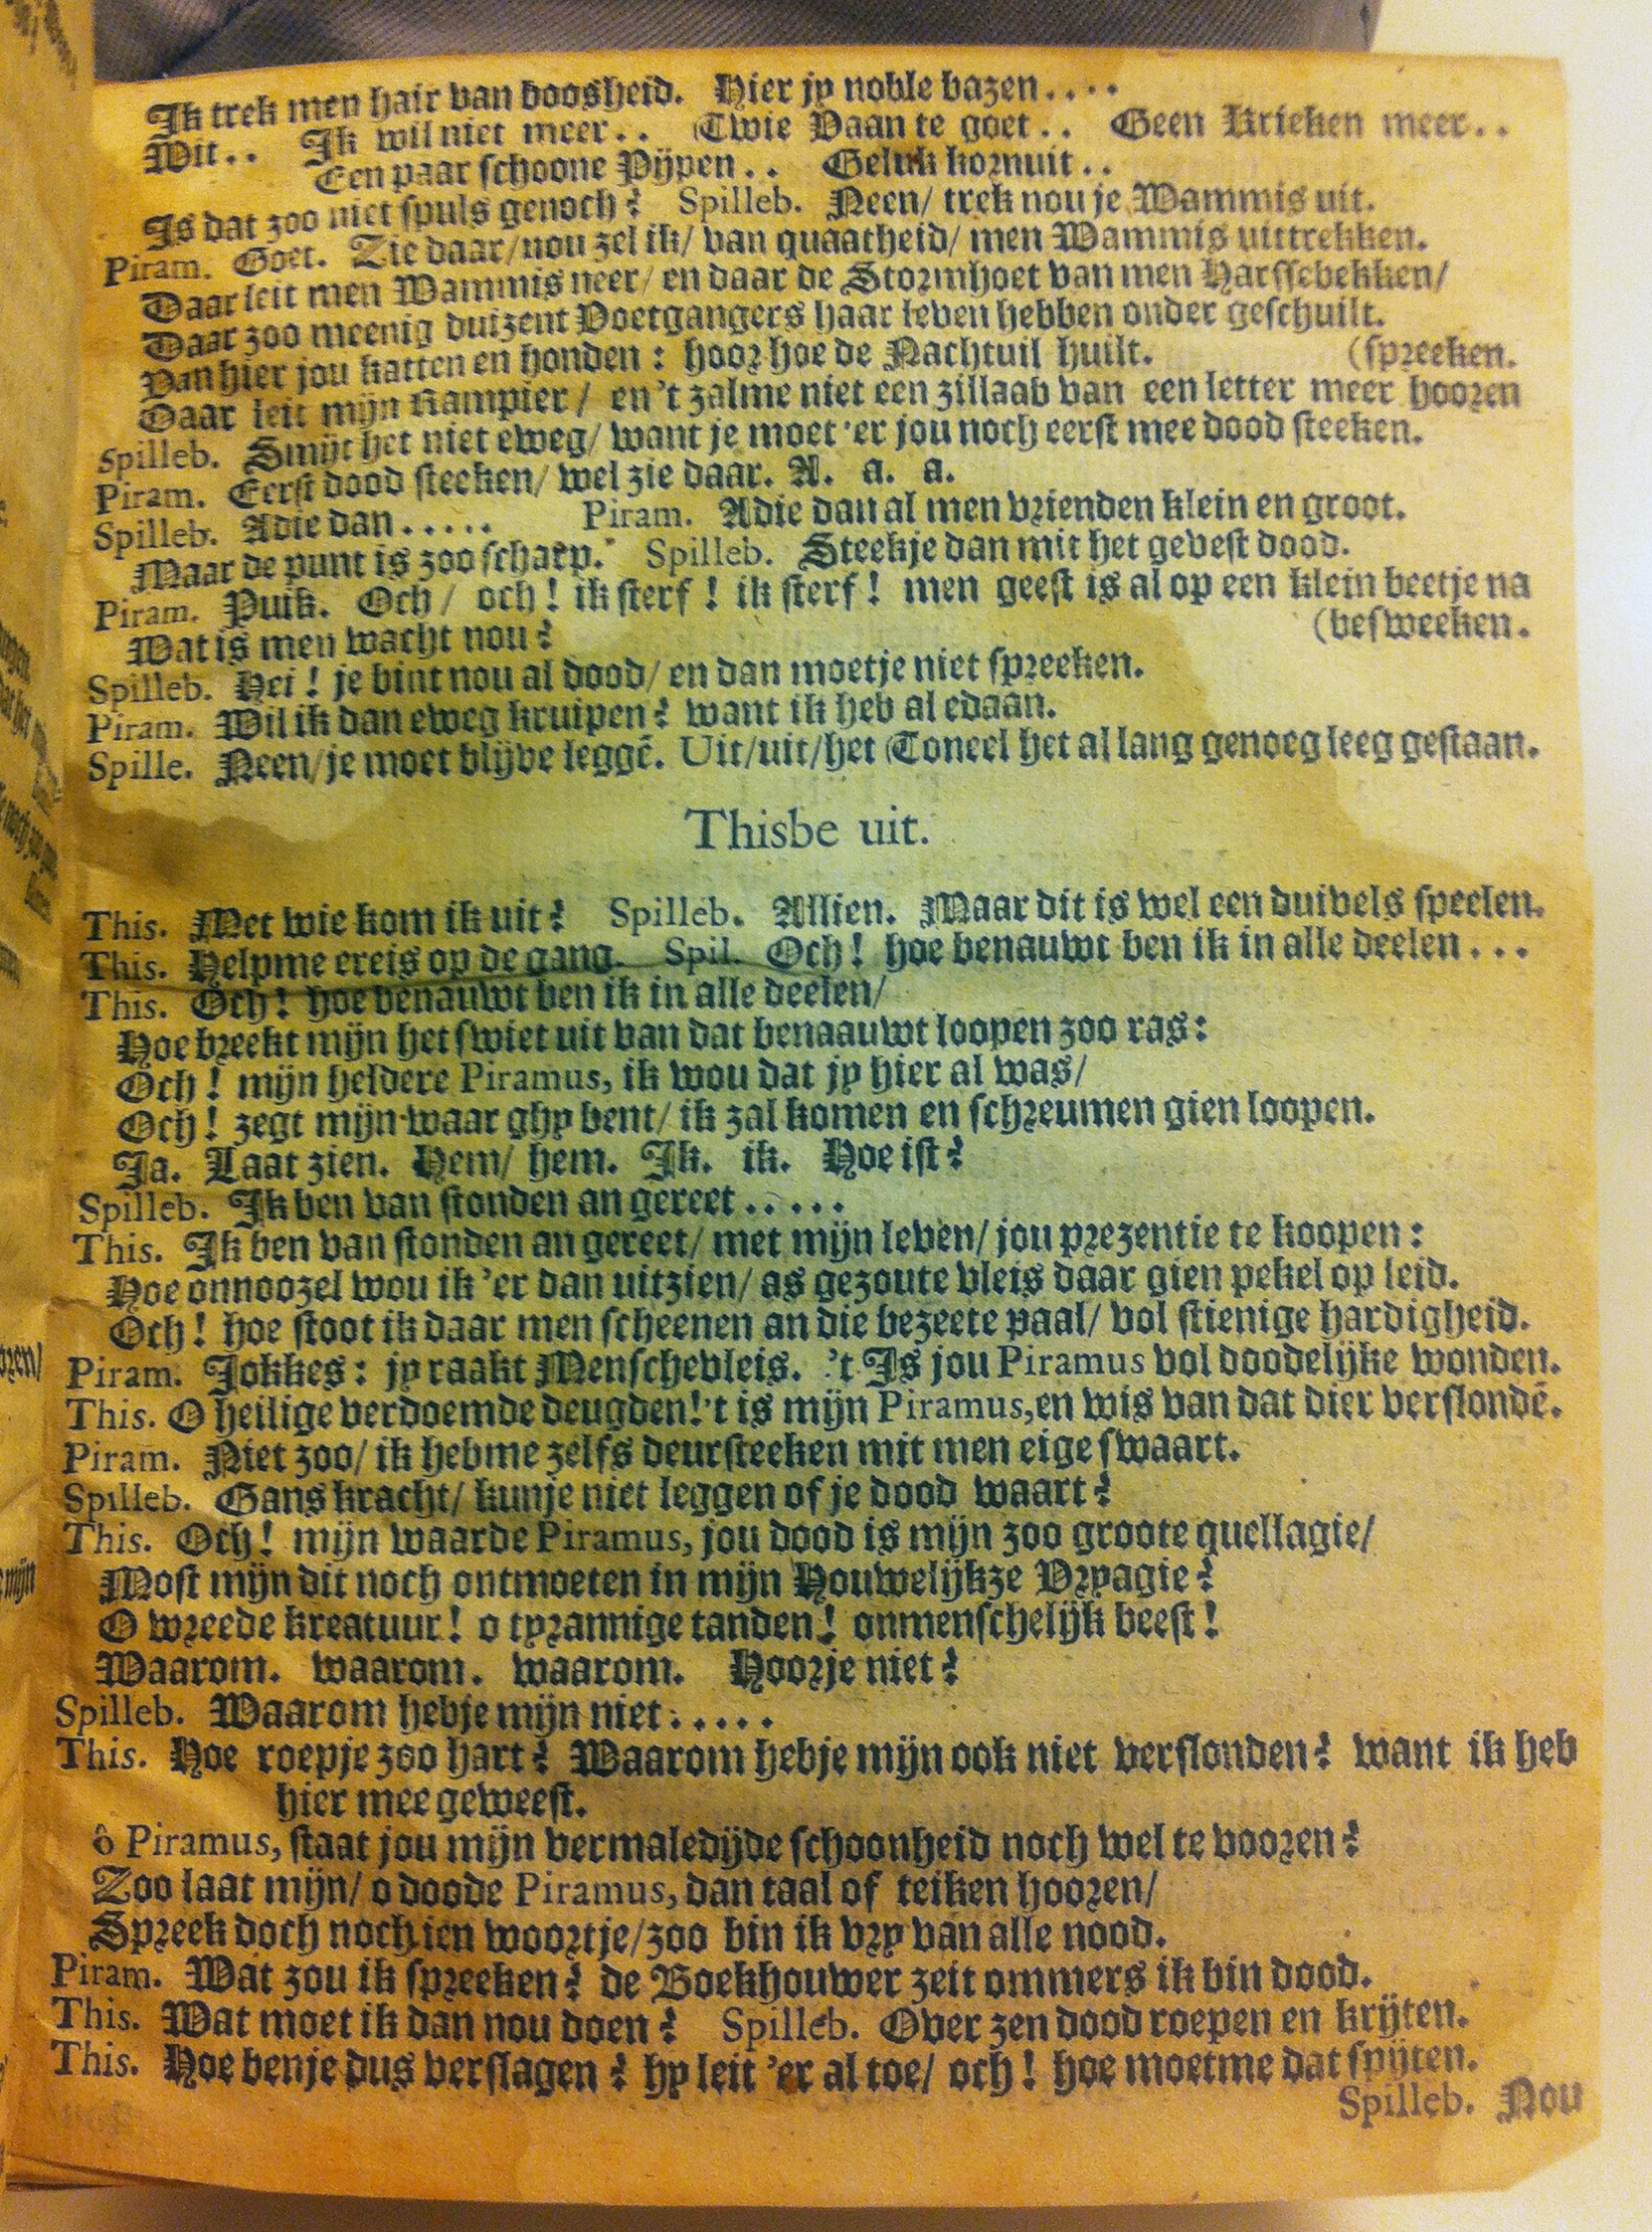 Ik trek men hair van boosheid. Hier jy noble bazen....
Wit.. Ik wil niet meer.. Twie Vaan te goet.. Geen Krieken meer..
Een paar schoone Pijpen.. Geluk kornuit..
Is dat zoo niet spuls genoch? Spilleb. Neen/ trek nou je Wammis uit.
Piram. Goet. Zie daar/ nou zel ik/ van quaatheid/ men Wammis uittrekken.
Daar leit men Wammis neer/ en daar de Stormhoet van men Harssebekken/
Daar zoo meenig duizent Voetgangers haar leven hebben onder geschuilt.
Van hier jou katten en honden: hoor hoe de Nachtuil huilt. (spreeken.
Daar leit mijn Rampier/ en 't zalme niet een zillaab van een letter meer hooren
Spilleb. Smijt het niet eweg/ want je moet 'er jou noch eerst mee dood steeken.
Piram. Eerst dood steeken/ wel zie daar. A. a. a.
Spilleb. Adie dan..... Piram. Adie dan al men vrienden klein en groot.
Maar de punt is zoo scharp. Spilleb. Steekje dan mit het gevest dood.
Piram. Puik. Och/ och! ik sterf! ik sterf! men geest is al op een klein beetje na
Wat is men wacht nou? (besweeken.
Spilleb. Hei! je bint nou al dood/ en dan moetje niet spreeken.
Piram. Wil ik dan eweg kruipen? want ik heb al edaan.
Spille. Neen/ je moet blijve leggē. Uit/uit/het Toneel het al lang genoeg leeg gestaan.
Thisbe uit.
This. Met wie kom ik uit? Spilleb. Allien. Maar dit is wel een duivels speelen.
This. Helpme ereis op de gang. Spil. Och! hoe benauwt ben ik in alle deelen...
This. Och! hoe benauwt ben ik in alle deelen/
Hoe breekt mijn het swiet uit van dat benaauwt loopen zoo ras:
Och! mijn heldere Piramus, ik wou dat jy hier al was/
Och! zegt mijn waar ghy bent/ ik zal komen en schreumen gien loopen.
Ja. Laat zien. Hem/ hem. Ik. ik. Hoe ist?
Spilleb. Ik ben van stonden an gereet.....
This. Ik ben van stonden an gereet/ met mijn leven/ jou prezentie te koopen:
Hoe onnoozel wou ik 'er dan uitzien/ as gezoute vleis daar gien pekel op leid.
Och! hoe stoot ik daar men scheenen an die bezeete paal/ vol stienige hardigheid.
Piram. Jokkes: jy raakt Menschevleis. 't Is jou Piramus vol doodelijke wonden.
This. O heilige verdoemde deugden! 't is mijn Piramus, en wis van dat dier verslondē.
Piram. Niet zoo/ ik hebme zelfs deursteeken mit men eige swaart.
Spilleb. Gans kracht/ kunje niet leggen of je dood waart?
This. Och! mijn waarde Piramus, jou dood is mijn zoo groote quellagie/
Most mijn dit noch ontmoeten in mijn Houwelijkze Vryagie?
O wreede kreatuur! o tyrannige tanden! onmenschelijk beest!
Waarom. waarom. waarom. Hoorje niet?
Spilleb. Waarom hebje mijn niet.....
This. Hoe roepje zoo hart? Waarom hebje mijn ook niet verslonden? want ik heb
hier mee geweest.
ô Piramus, staat jou mijn vermaledijde schoonheid noch wel te vooren?
Zoo laat mijn/ o doode Piramus, dan taal of teiken hooren/
Spreek doch noch ien woortje/ zoo bin ik vry van alle nood.
Piram. Wat zou ik spreeken? de Boekhouwer zeit ommers ik bin dood.
This. Wat moet ik dan nou doen? Spilleb. Over zen dood roepen en krijten.
This. Hoe benje dus verslagen? hy leit 'er al toe/ och! hoe moetme dat spijten.
Spilleb. Nou